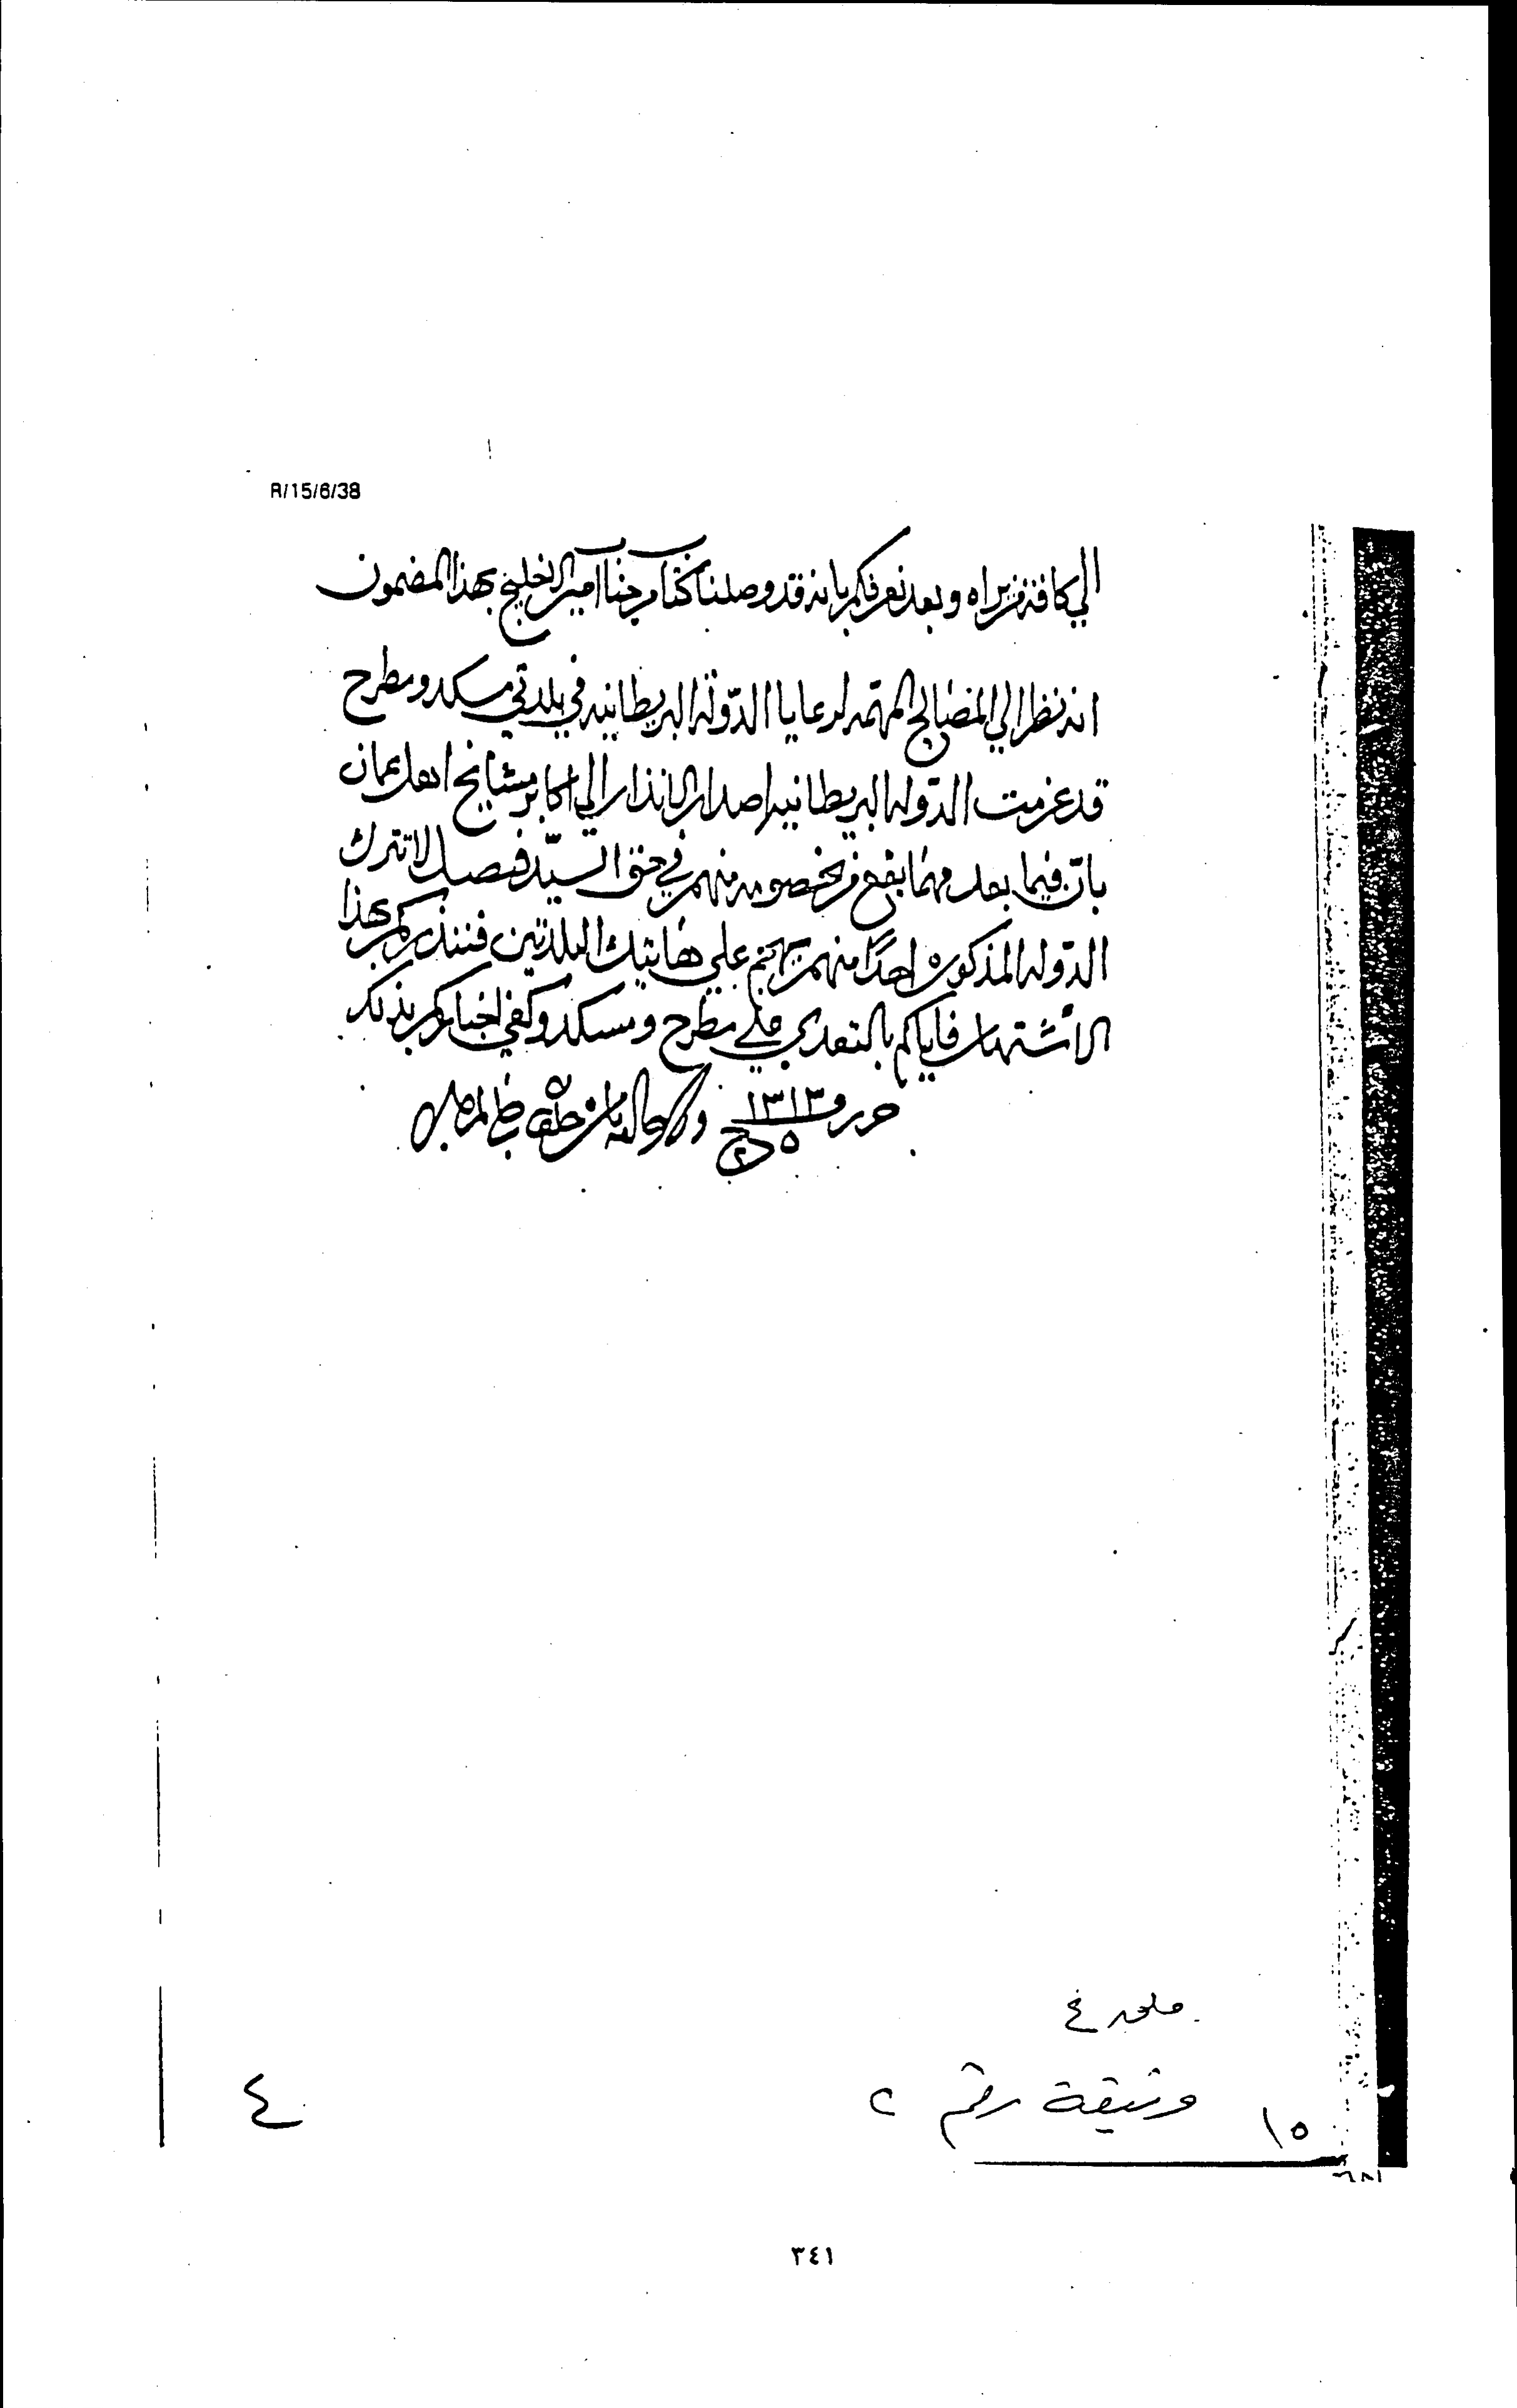 R/15/6/38
الي كافة من يراه وبعد نعرفكم بانه قد وصلنا كتاب من جناب امير الخليج بهذا المضمون
انه نظرا الي المصالح المهمه لرعايا الدّولة البريطانيه في بلدتي مسكد ومطرح
قد عزمت الدّوله البريطانيه اصدار الانذار الي اكابر مشايخ اهل عمان
بانّ فيما بعد مهما يقع من خصومه منهم في حق السيّد فيصل لا تترك
الدّوله المذكوره احدًا منهم يهجم علي هاتيك البلدتين فننذركم بهذا
الأشتهار فاياكم بالتعدي علي مطرح ومسكد وكفي اخباركم بذلك
حرر في ٥ ١٣١٣
ملحق ٤
وثيقة رقم ٢
١٥
٤
٣٤١